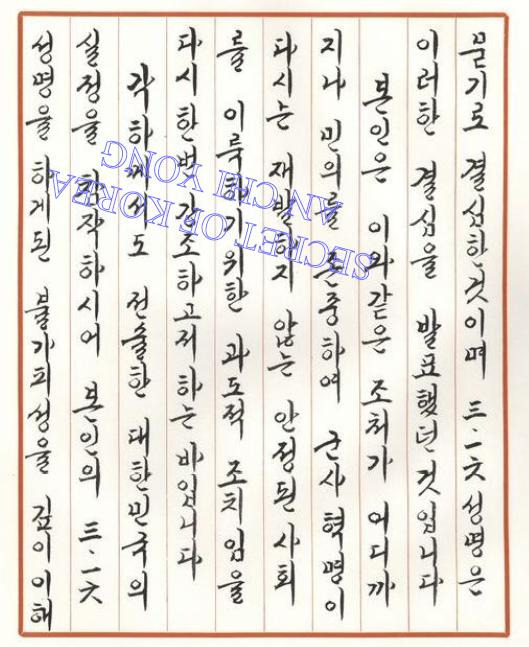 묻기로 결심한것이며 三.一六성명은
이러한 결심을 발표했던 것입니다
본인은 이와같은 조처가 어디까
지나 민의를 존중하여 군사혁명이
다시는 재발하지 않는 안정된 사회
를 이룩하기위한 과도적 조치임을
다시한번 강조하고저 하는 바입니다
각하께서도 전술한 대한민국의
실정을 참작하시어 본인의 三.一六
성명을 하게된 불가피성을 깊이 이해
SECRET OF KOREA
AN CHI YONG